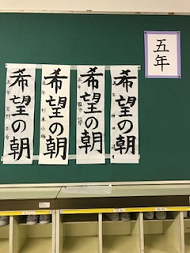 五年
希望の朝
希望の朝
希望の朝
希望の朝